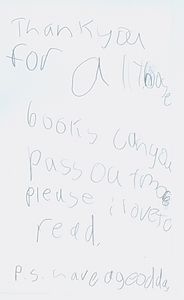 Thank you
for all those
books can you
pass oat more
please i love to
read.
P.S. have a good da